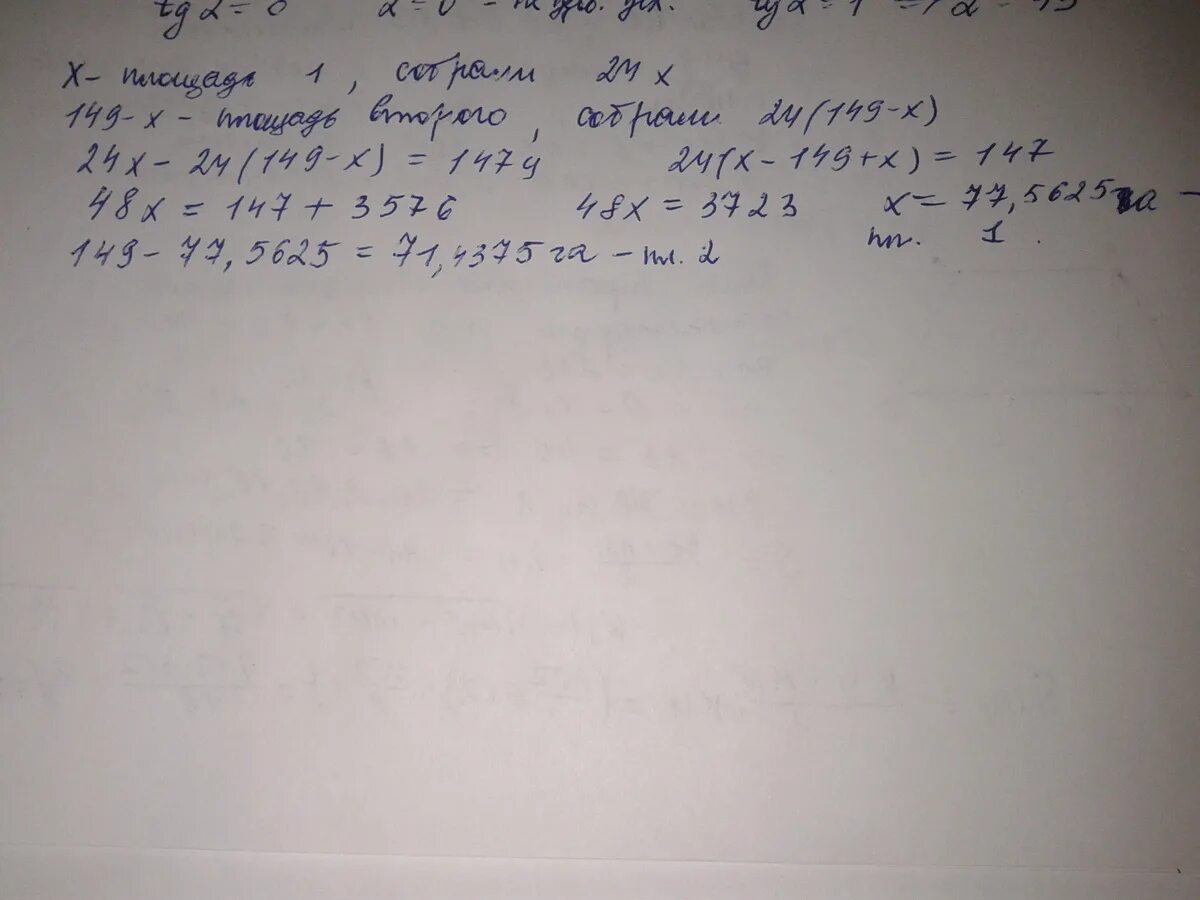 tg 2 = 0 2 = 0 - tg 2 = 1 => 2 = 45
x - площадь 1, собрали 24 x
149 - x - площадь второго, собрали 24(149-x)
24x - 24(149-x) = 147ц 24(x - 149 + x) = 147
48x = 147 + 3576 48x = 3723 x = 77,5625 га -
пл. 1.
149 - 77,5625 = 71,4375 га - пл. 2